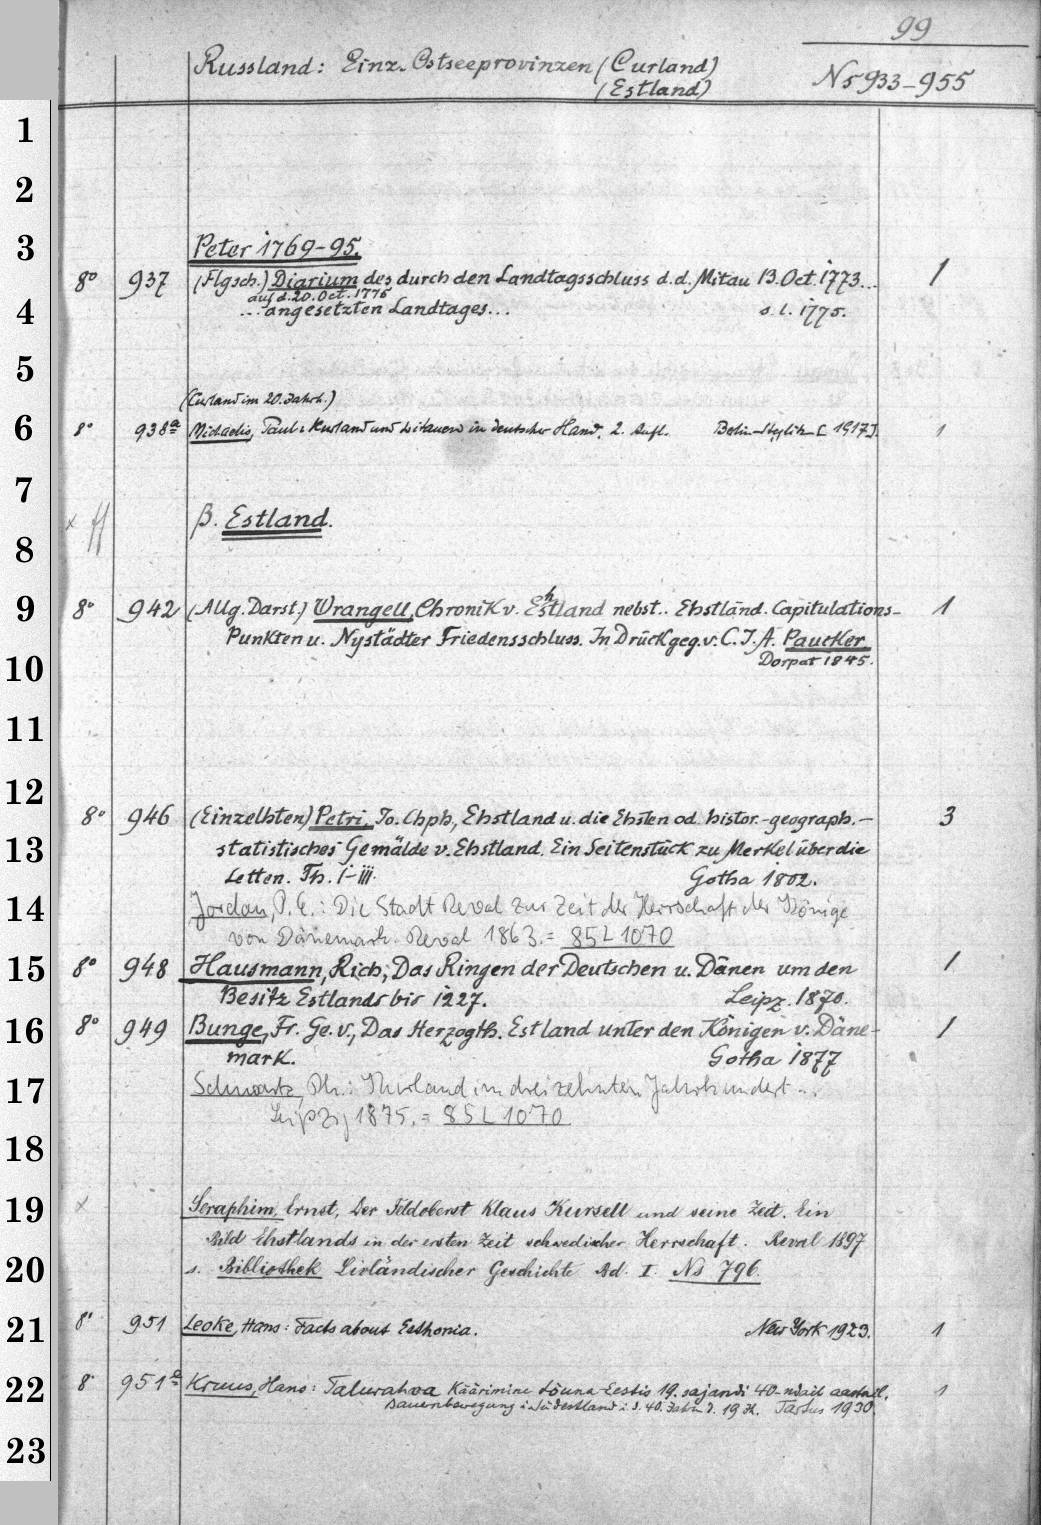 99
Russland: Einz. Ostseeprovinzen (Curland)
(Estland)
No 933-955
1
2
3
Peter 1769-95.
8° 937 (Flgsch.) Diarium des durch den Landtagsschluss d.d. Mitau 13. Oct. 1773... 1
auf d. 20. Oct. 1775
4
...angesetzten Landtages... s. l. 1775.
5
(Curland im 20. Jahrh.)
6
8° 938a Michaelis, Paul: Kurland und Litauen in deutscher Hand. 2. Aufl. Berlin-Steglitz [1917]. 1
7
β. Estland.
x ff
8
9
8° 942 (Allg. Darst.) Wrangell, Chronik v. Ehstland nebst.. Ehstländ. Capitulations- 1
Punkten u. Nystädter Friedensschluss. In Druck geg. v. C. J. A. Paucker.
10
Dorpat 1845.
11
12
8° 946 (Einzelhten) Petri, Jo. Chph, Ehstland u. die Ehsten od. histor.-geograph.- 3
13
statistisches Gemälde v. Ehstland. Ein Seitenstück zu Merkel über die
Letten. Th. I-III. Gotha 1802.
14
Jordan, P. E.: Die Stadt Reval zur Zeit der Herrschaft der Könige
von Dänemark. Reval 1863. = 85 L 1070
15
8° 948 Hausmann, Rich., Das Ringen der Deutschen u. Dänen um den 1
Besitz Estlands bis 1227. Leipz. 1870.
16
8° 949 Bunge, Fr. Ge. v., Das Herzogth. Estland unter den Königen v. Däne- 1
mark. Gotha 1877
17
Schwartz, Ph.: Kurland im dreizehnten Jahrhundert...
Leipzig 1875. = 85 L 1070
18
19
x Seraphim, Ernst, Der Feldoberst Klaus Kursell und seine Zeit. Ein
Bild Ehstlands in der ersten Zeit schwedischer Herrschaft. Reval 1897
20
s. Bibliothek Livländischer Geschichte Bd. I. No 796.
21
8° 951 Leoke, Hans: Facts about Esthonia. New York 1923. 1
22
8° 951a Kruus, Hans: Talurahva Käärimine Lõuna-Eestis 19. sajandi 40-ndail aastail. 1
Bauernbewegung i. Südestland i. d. 40. Jahren d. 19. Jh. Tartus 1930.
23